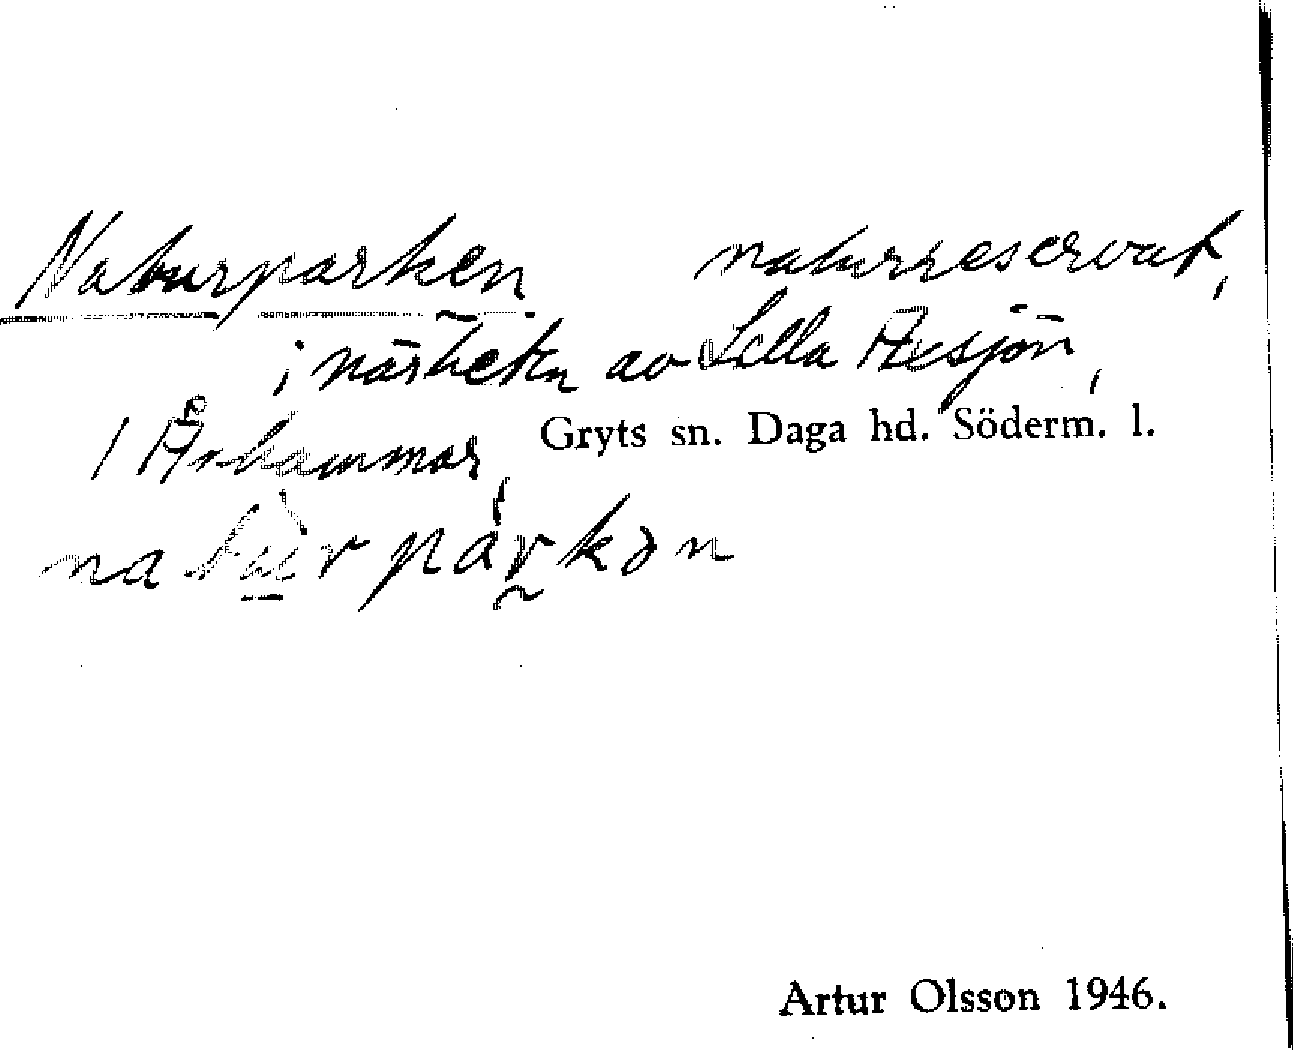 Naturparken naturreservat,
i närheten av Lilla Axsjön,
/ Århammar, Gryts sn. Daga hd. Söderm. l.
natùrpárkən
Artur Olsson 1946.